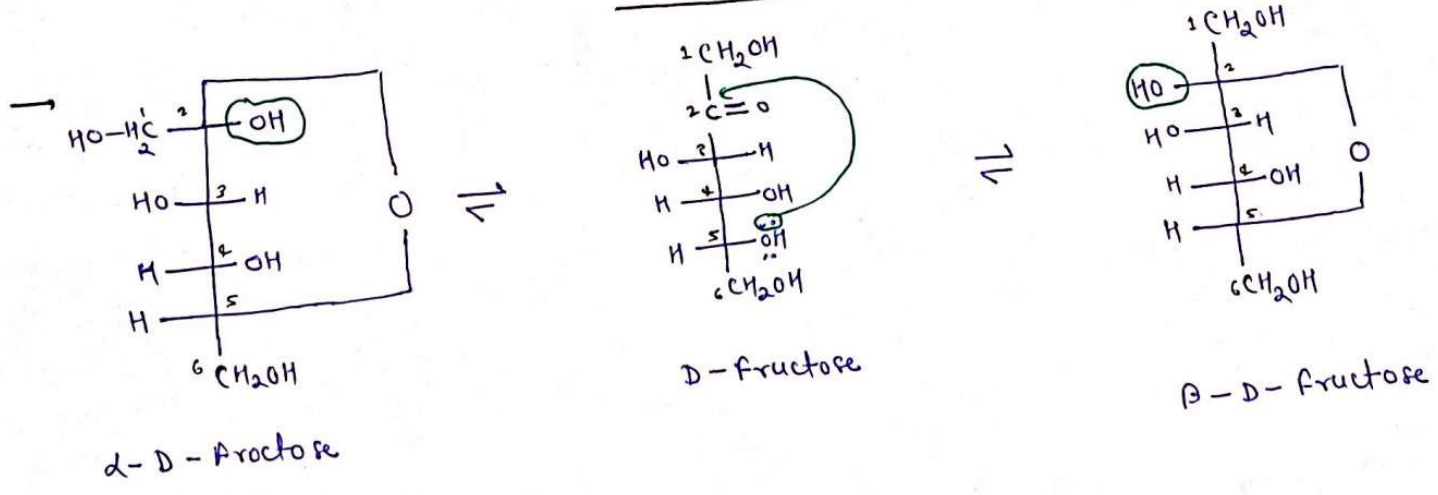 HO-H₂C¹ 2 OH
HO 3 H
O
H 4 OH
H 5
6 CH₂OH
α-D-Aroctose
⇌
1 CH₂OH
2 C=O
HO 3 H
H 4 OH
H 5 OH
6 CH₂OH
D-fructose
⇌
1 CH₂OH
HO 2
HO 3 H
O
H 4 OH
H 5
6 CH₂OH
β-D-fructose